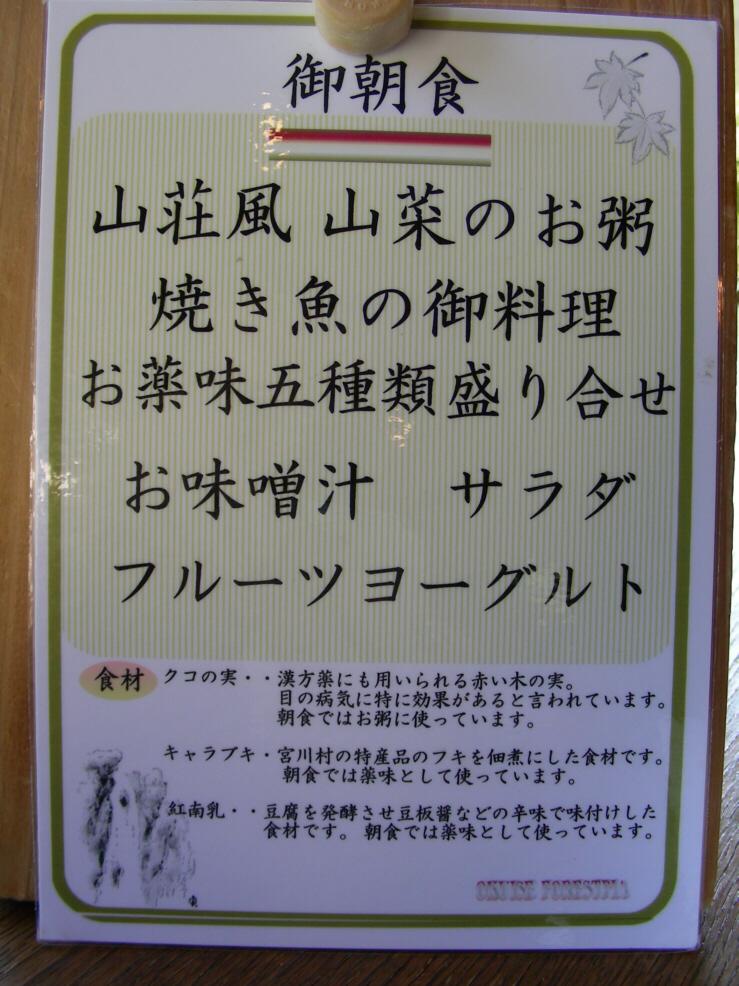 御朝食
山荘風 山菜のお粥
焼き魚の御料理
お薬味五種類盛り合せ
お味噌汁 サラダ
フルーツヨーグルト
食材 クコの実・・漢方薬にも用いられる赤い木の実。
目の病気に特に効果があると言われています。
朝食ではお粥に使っています。
キャラブキ・宮川村の特産品のフキを佃煮にした食材です。
朝食では薬味として使っています。
紅南乳・・豆腐を発酵させ豆板醤などの辛味で味付けした
食材です。 朝食では薬味として使っています。
OKUISE FORESTPIA